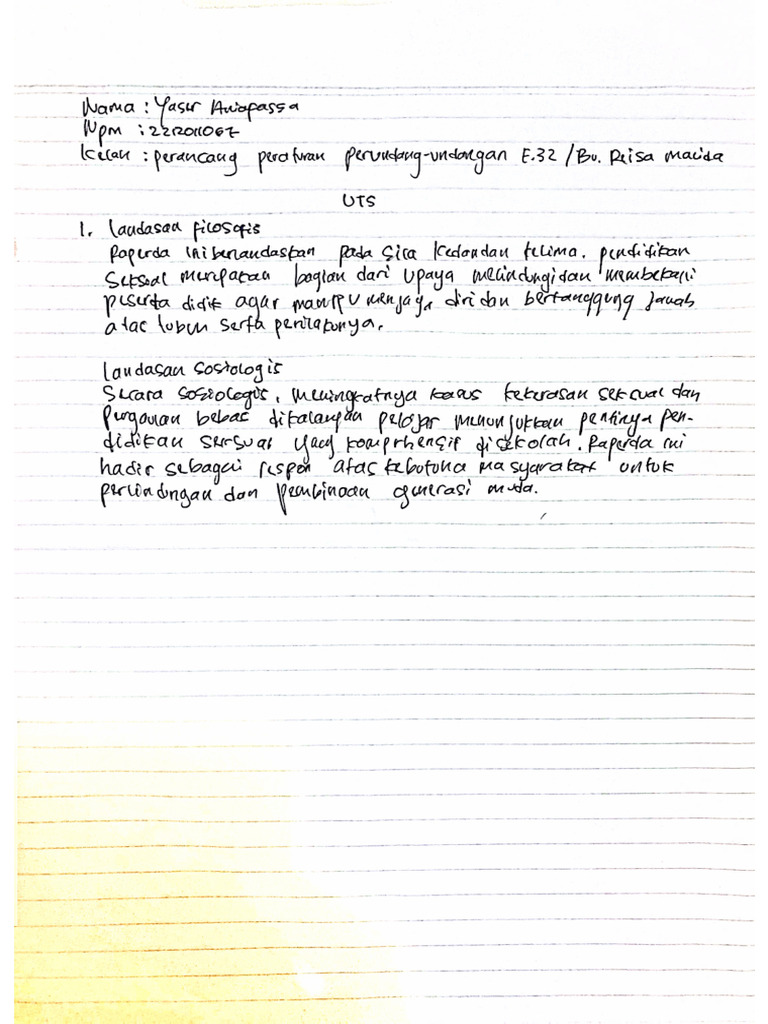 Nama : Yasir
Npm : 221201067
Kelas : perancang peraturan perundang-undangan E.32 / Bu. Reisa Malida
UTS
1. landasan filosofis
Raperda ini berlandaskan pada Sila Kedua dan kelima. pendidikan
Seksual merupakan bagian dari upaya melindungi dan membekali
peserta didik agar mampu menjaga diri dan bertanggung jawab
atas tubuh serta perilakunya.
landasan sosiologis
Secara sosiologis, meningkatnya kasus kekerasan seksual dan
pergaulan bebas dikalangan pelajar menunjukkan pentinya pen-
didikan seksual yang komprhensif disekolah. Raperda ini
hadir sebagai respon atas kebutuha masyarakat untuk
perlindungan dan pembinaan generasi muda.